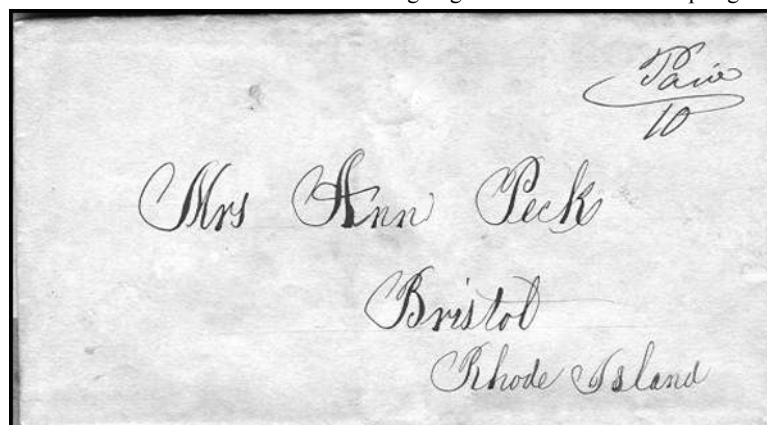 Paid
10
Mrs Ann Peck
Bristol
Rhode Island